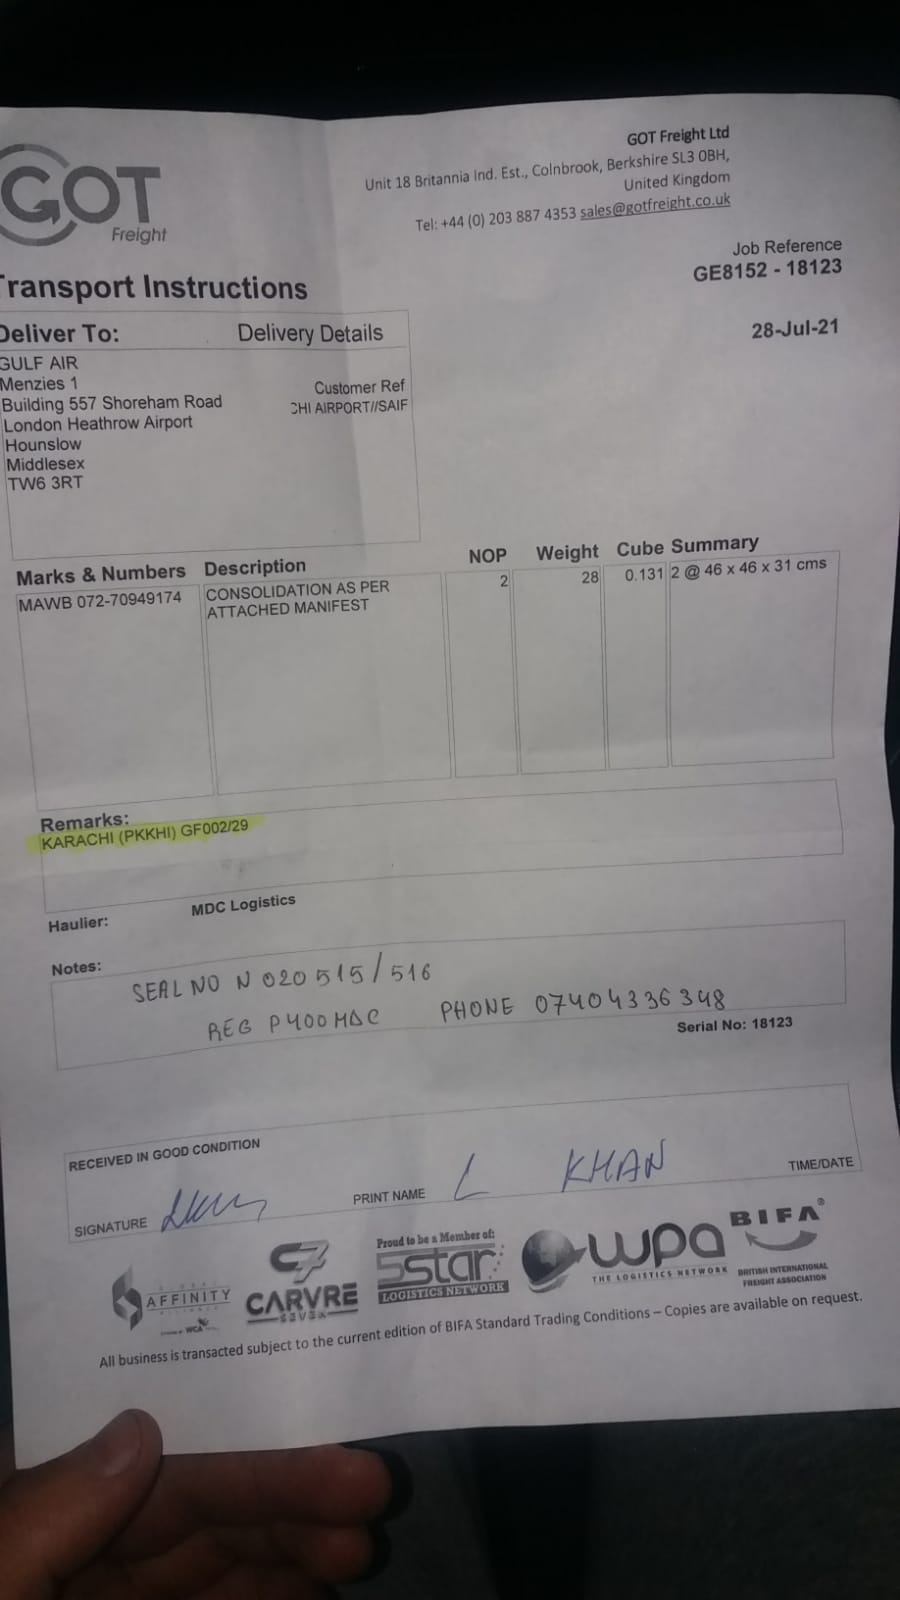 GOT
Freight
GOT Freight Ltd
Unit 18 Britannia Ind. Est., Colnbrook, Berkshire SL3 0BH,
United Kingdom
Tel: +44 (0) 203 887 4353 sales@gotfreight.co.uk
Job Reference
GE8152 - 18123
Transport Instructions
28-Jul-21
Deliver To: Delivery Details
GULF AIR
Menzies 1
Building 557 Shoreham Road
London Heathrow Airport
Hounslow
Middlesex
TW6 3RT
Customer Ref
CHI AIRPORT//SAIF
Marks & Numbers Description NOP Weight Cube Summary
MAWB 072-70949174 CONSOLIDATION AS PER 2 28 0.131 2 @ 46 x 46 x 31 cms
ATTACHED MANIFEST
Remarks:
KARACHI (PKKHI) GF002/29
Haulier: MDC Logistics
Notes:
SEAL NO N 020515/516
REG P400MDC PHONE 07404336348
Serial No: 18123
RECEIVED IN GOOD CONDITION
SIGNATURE PRINT NAME L KHAN TIME/DATE
AFFINITY
C7
CARVRE
SEVEN
Proud to be a Member of:
5star
LOGISTICS NETWORK
wpa
THE LOGISTICS NETWORK
BIFA®
BRITISH INTERNATIONAL
FREIGHT ASSOCIATION
All business is transacted subject to the current edition of BIFA Standard Trading Conditions – Copies are available on request.